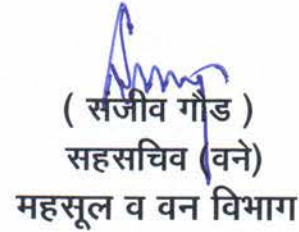 ( संजीव गौड )
सहसचिव (वने)
महसूल व वन विभाग